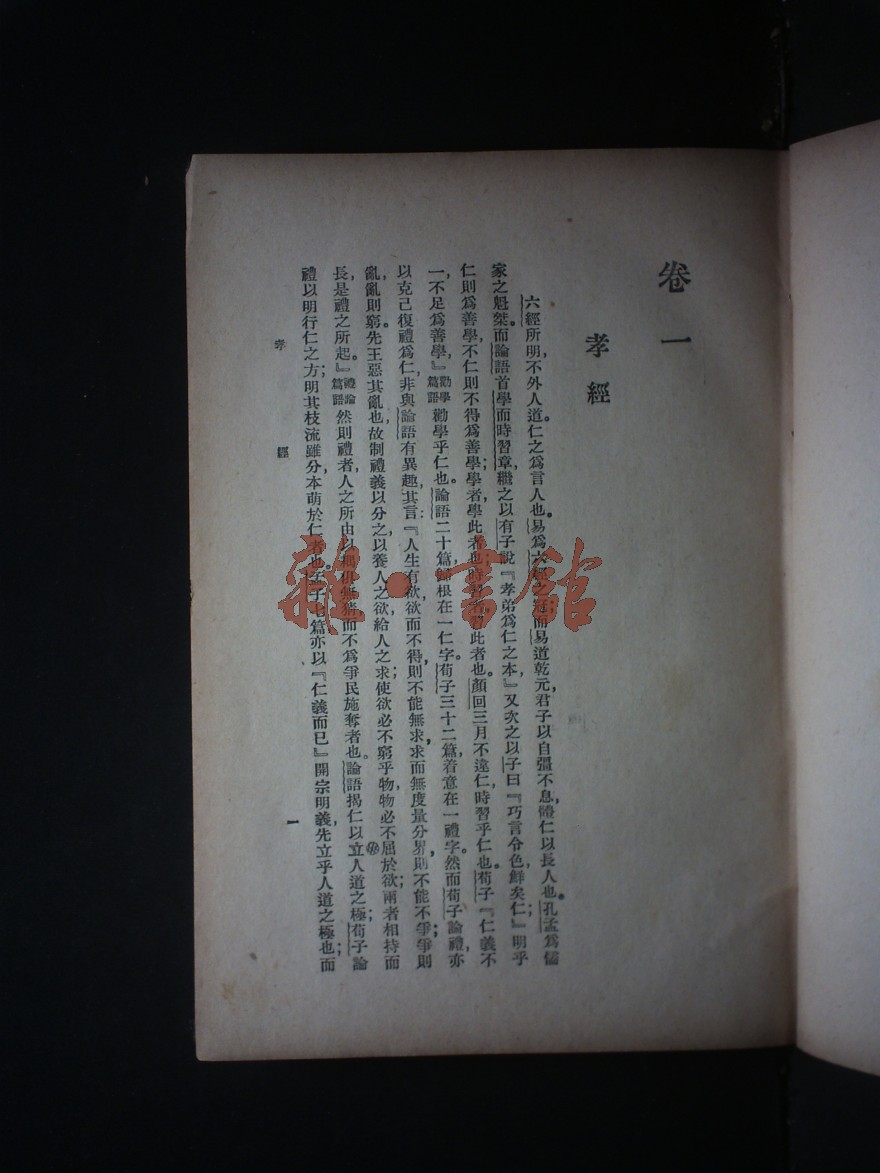 卷一
孝經
六經所明，不外人道。仁之爲言人也。易爲六經之冠；而易道乾元，君子以自彊不息，體仁以長人也。孔孟爲儒
家之魁桀。而論語首學而時習章，繼之以有子說『孝弟爲仁之本，』又次之以子曰『巧言令色，鮮矣仁；』明乎
仁則爲善學，不仁則不得爲善學；學者學此者也，時習者習此者也。顏回三月不違仁，時習乎仁也。荀子『仁義不
一，不足爲善學，』勸學篇語勸學乎仁也。論語二十篇，歸根在一仁字。荀子三十二篇，着意在一禮字。然而荀子論禮，亦
以克己復禮爲仁，非與論語有異趣。其言：『人生有欲，欲而不得，則不能無求，求而無度量分界，則不能不爭；爭則
亂，亂則窮。先王惡其亂也，故制禮義以分之，以養人之欲，給人之求；使欲必不窮乎物，物必不屈於欲，兩者相持而
長，是禮之所起。』禮論篇語然則禮者，人之所由以而不爲爭民施奪者也。論語揭仁以立人道之極；荀子論
禮以明行仁之方；明其枝流雖分，本萌於仁者也。孟子七篇，亦以『仁義而已』開宗明義，先立乎人道之極也；而
孝經
一
雜·書館